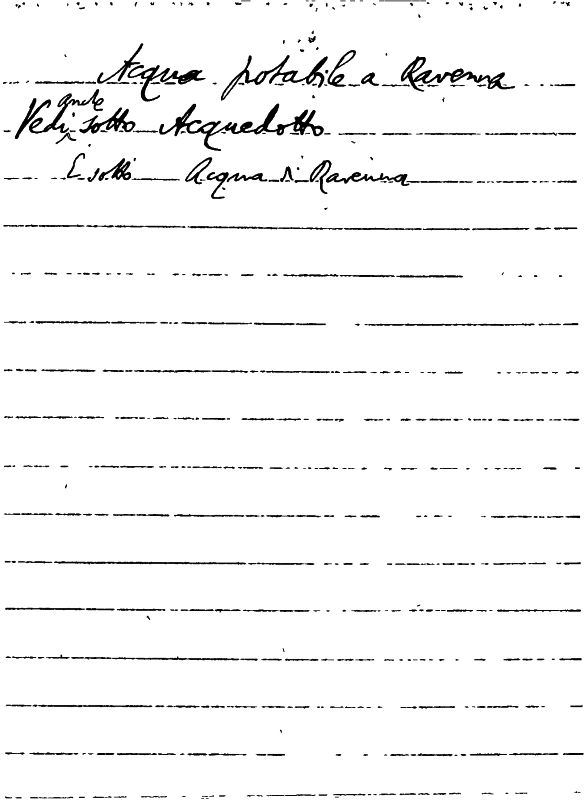 Acqua potabile a Ravenna
Vedi anche sotto Acquedotto
E sotto Acqua di Ravenna